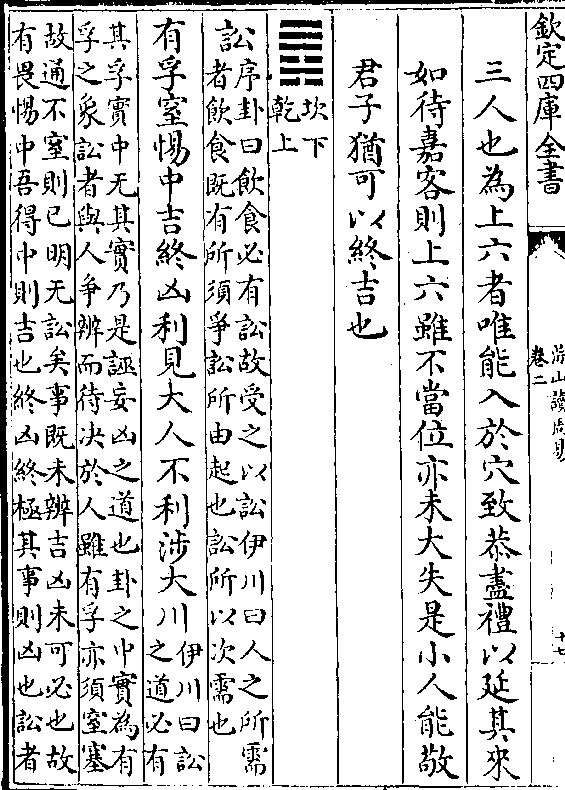 欽定四庫全書
卷二
十七
三人也為上六者唯能入於穴致恭盡禮以延其來
如待嘉客則上六雖不當位亦未大失是小人能敬
君子猶可以終吉也
坎下
乾上
訟序卦曰飲食必有訟故受之以訟伊川曰人之所需
者飲食既有所須爭訟所由起也訟所以次需也
有孚窒惕中吉終凶利見大人不利涉大川
伊川曰訟
之道必有
其孚實中无其實乃是誣妄凶之道也卦之中實為有
孚之象訟者與人爭辨而待決於人雖有孚亦須窒塞
故通不窒則已明无訟矣事既未辨吉凶未可必也故
有畏惕中吾得中則吉也終凶終極其事則凶也訟者